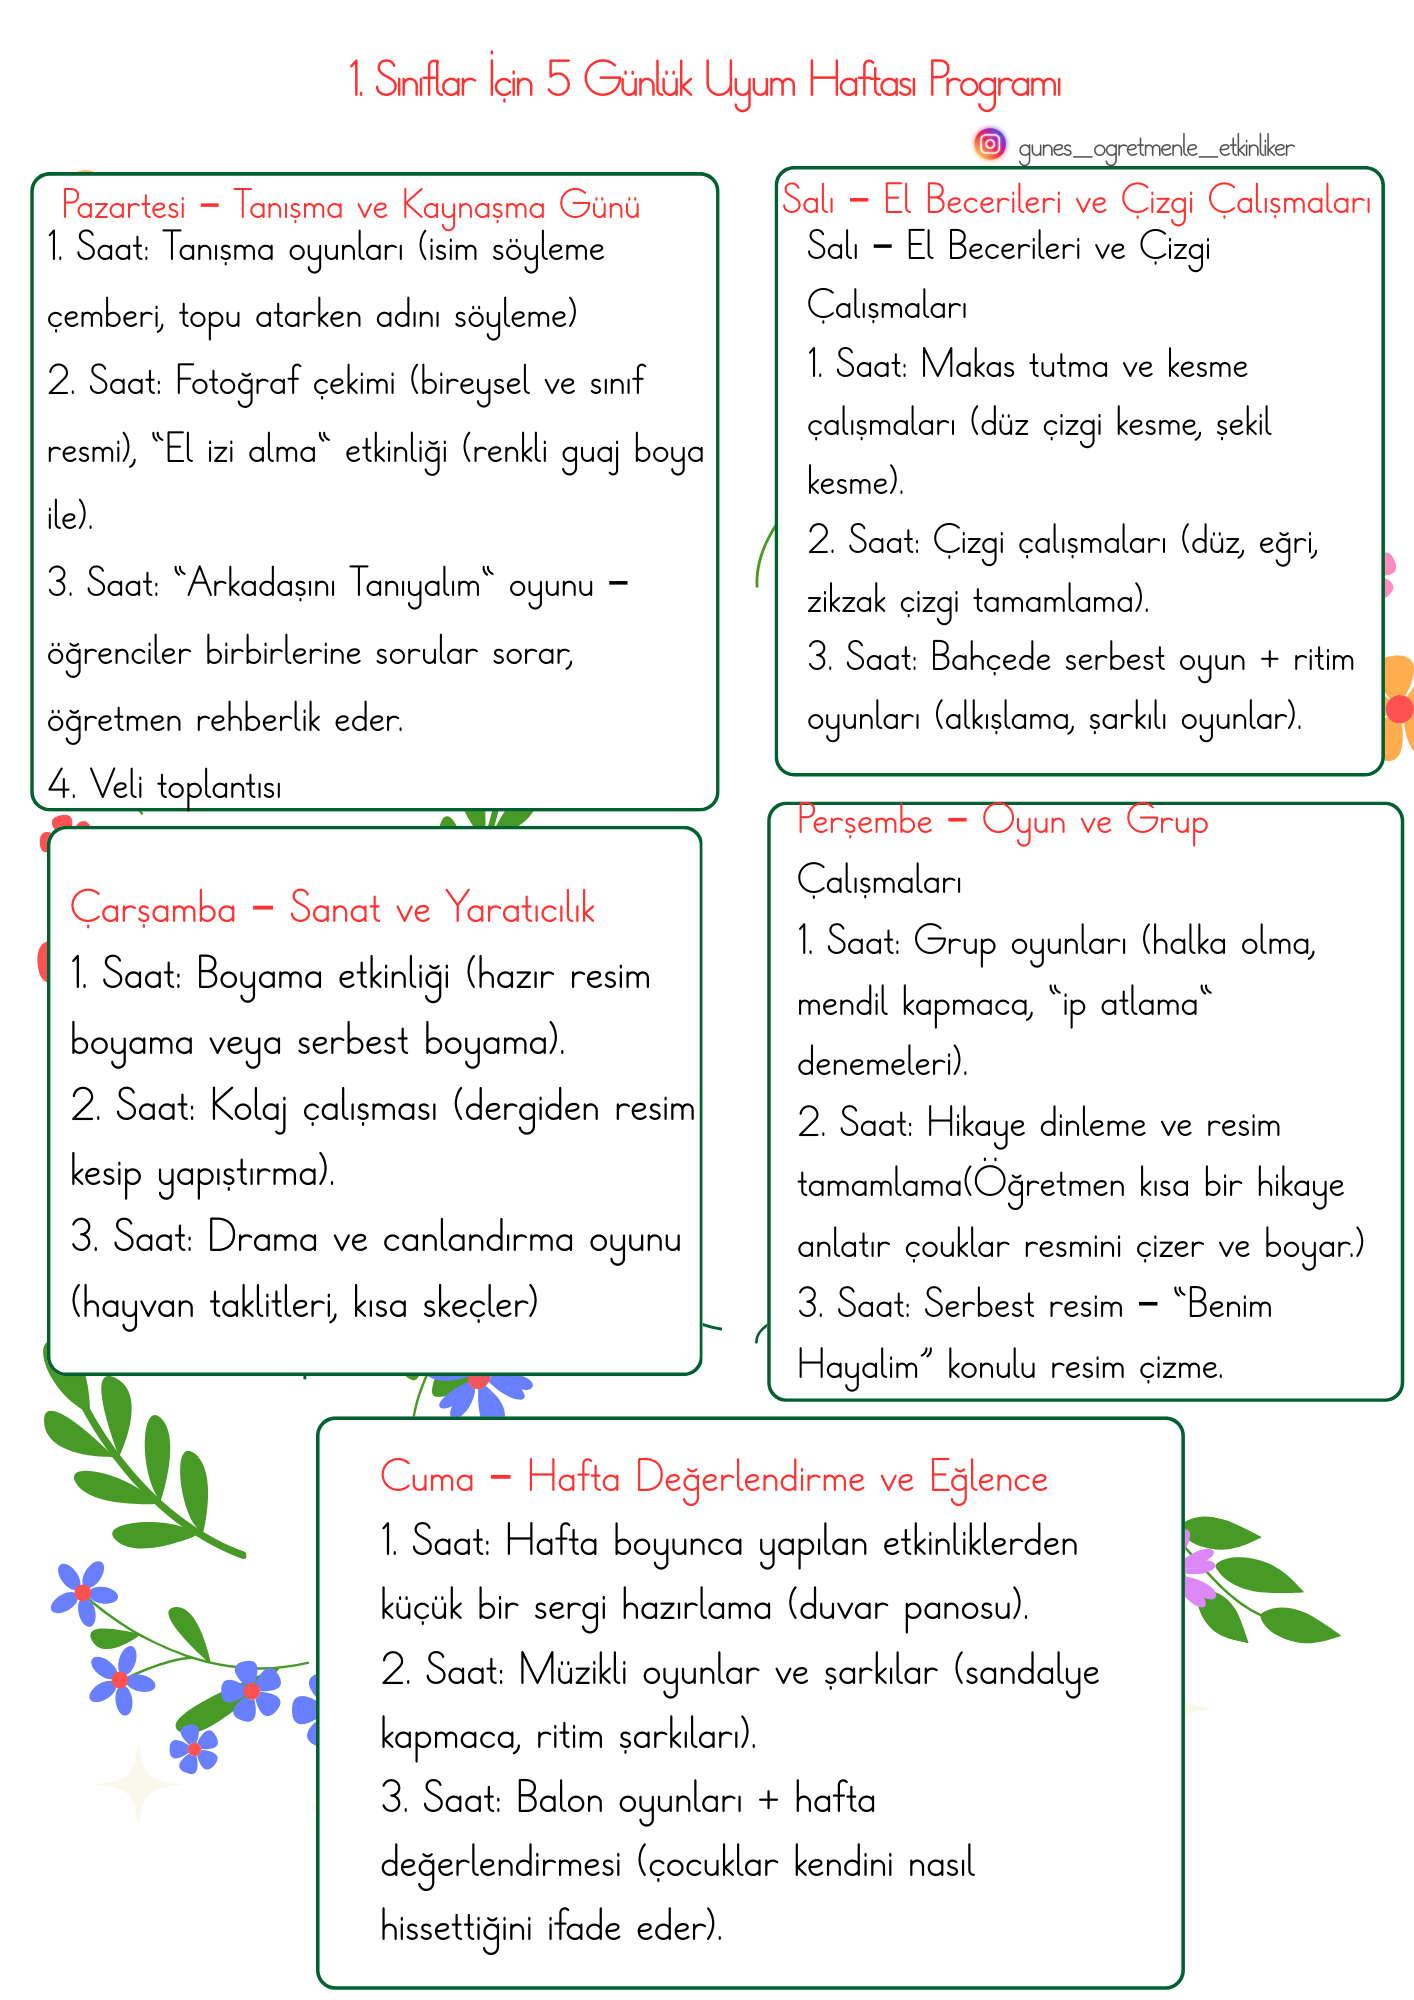 1. Sınıflar İçin 5 Günlük Uyum Haftası Programı
gunes_ogretmenle_etkinliker
Pazartesi – Tanışma ve Kaynaşma Günü
1. Saat: Tanışma oyunları (isim söyleme
çemberi, topu atarken adını söyleme)
2. Saat: Fotoğraf çekimi (bireysel ve sınıf
resmi), “El izi alma“ etkinliği (renkli guaj boya
ile).
3. Saat: “Arkadaşını Tanıyalım“ oyunu –
öğrenciler birbirlerine sorular sorar,
öğretmen rehberlik eder.
4. Veli toplantısı
Salı – El Becerileri ve Çizgi Çalışmaları
Salı – El Becerileri ve Çizgi
Çalışmaları
1. Saat: Makas tutma ve kesme
çalışmaları (düz çizgi kesme, şekil
kesme).
2. Saat: Çizgi çalışmaları (düz, eğri,
zikzak çizgi tamamlama).
3. Saat: Bahçede serbest oyun + ritim
oyunları (alkışlama, şarkılı oyunlar).
Çarşamba – Sanat ve Yaratıcılık
1. Saat: Boyama etkinliği (hazır resim
boyama veya serbest boyama).
2. Saat: Kolaj çalışması (dergiden resim
kesip yapıştırma).
3. Saat: Drama ve canlandırma oyunu
(hayvan taklitleri, kısa skeçler)
Perşembe – Oyun ve Grup
Çalışmaları
1. Saat: Grup oyunları (halka olma,
mendil kapmaca, “ip atlama“
denemeleri).
2. Saat: Hikaye dinleme ve resim
tamamlama(Öğretmen kısa bir hikaye
anlatır çouklar resmini çizer ve boyar.)
3. Saat: Serbest resim – “Benim
Hayalim” konulu resim çizme.
Cuma – Hafta Değerlendirme ve Eğlence
1. Saat: Hafta boyunca yapılan etkinliklerden
küçük bir sergi hazırlama (duvar panosu).
2. Saat: Müzikli oyunlar ve şarkılar (sandalye
kapmaca, ritim şarkıları).
3. Saat: Balon oyunları + hafta
değerlendirmesi (çocuklar kendini nasıl
hissettiğini ifade eder).